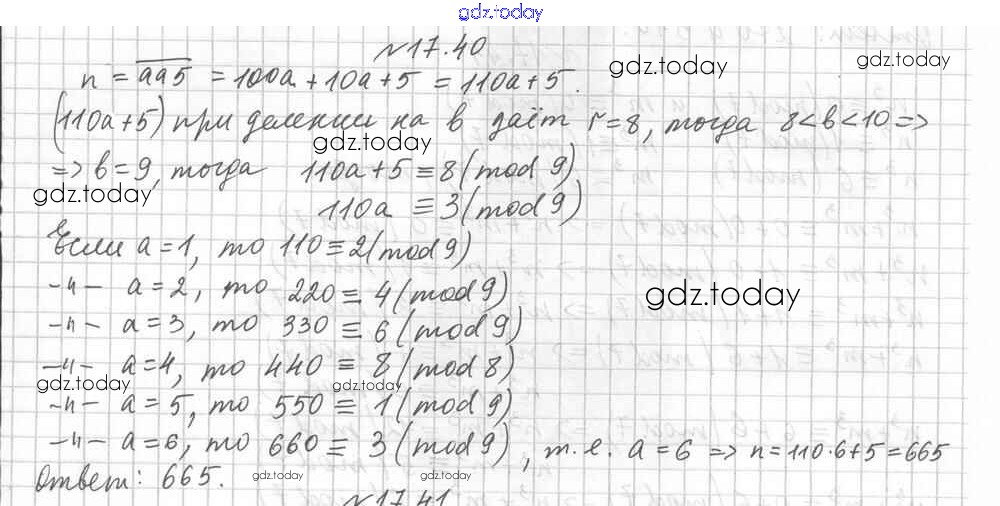 gdz.today
№17.40
n = aa5 = 100a + 10a + 5 = 110a + 5.
gdz.today
(110a + 5) при делении на в даёт r = 8, тогда 8 < в < 10 =>
gdz.today
=> в = 9, тогда 110a + 5 ≡ 8 (mod 9)
gdz.today
110a ≡ 3 (mod 9)
Если a = 1, то 110 ≡ 2 (mod 9)
-"- a = 2, то 220 ≡ 4 (mod 9)
gdz.today
-"- a = 3, то 330 ≡ 6 (mod 9)
-"- a = 4, то 440 ≡ 8 (mod 8)
gdz.today gdz.today
-"- a = 5, то 550 ≡ 1 (mod 9)
-"- a = 6, то 660 ≡ 3 (mod 9), т.е. a = 6 => n = 110·6 + 5 = 665
gdz.today
Ответ: 665.
gdz.today gdz.today
№17.41